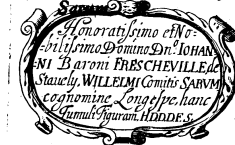 Sarum
Honoratissimo et No-
bilissimo Domino Dno. IOHAN-
NI Baroni FRESCHEVILLE de
Stavely, WILLELMI Comitis SARUM
cognomine Longespe, hanc
Tumuli Figuram. H.D.D.D.E.S.